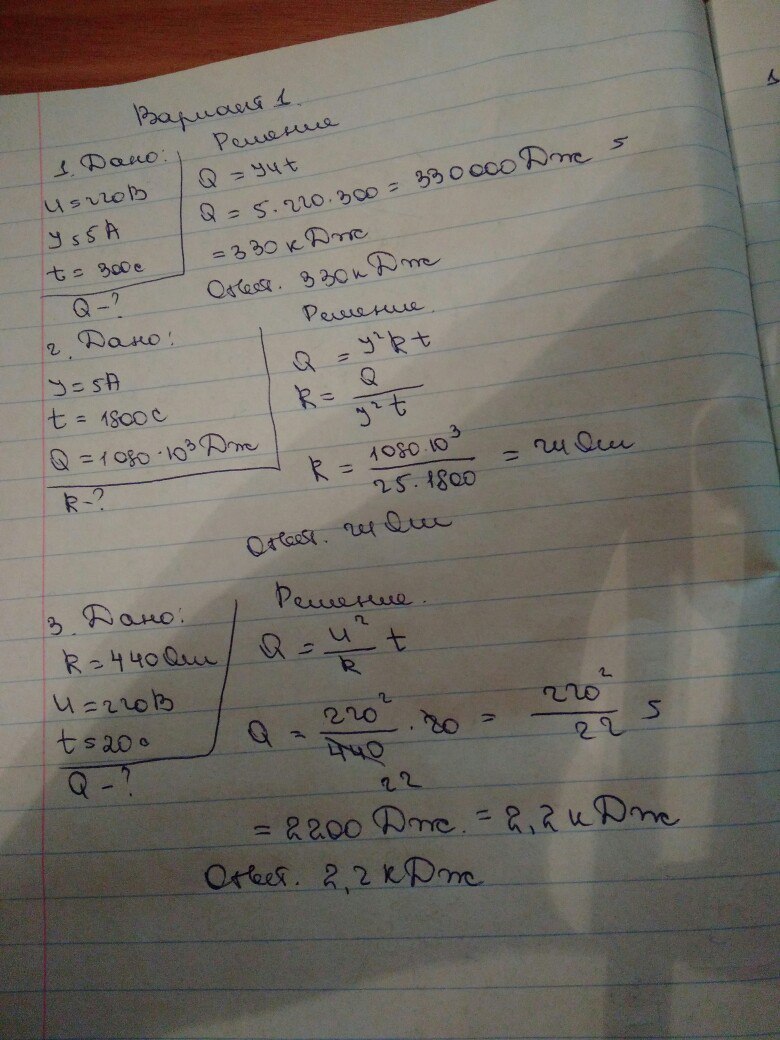 Вариант 1.
1. Дано:
U = 220В
I = 5А
t = 300с
Q - ?
Решение
Q = IUt
Q = 5·220·300 = 330000 Дж =
= 330 кДж
Ответ. 330 кДж
2. Дано:
I = 5А
t = 1800с
Q = 1080·10³ Дж
R - ?
Решение.
Q = I²Rt
R = Q / I²t
R = 1080·10³ / 25·1800 = 24 Ом
Ответ. 24 Ом
3. Дано:
R = 440 Ом
U = 220В
t = 20с
Q - ?
Решение.
Q = U² / R t
Q = 220² / 440 · 20 = 220² / 22 =
22
= 2200 Дж. = 2,2 кДж
Ответ. 2,2 кДж
1